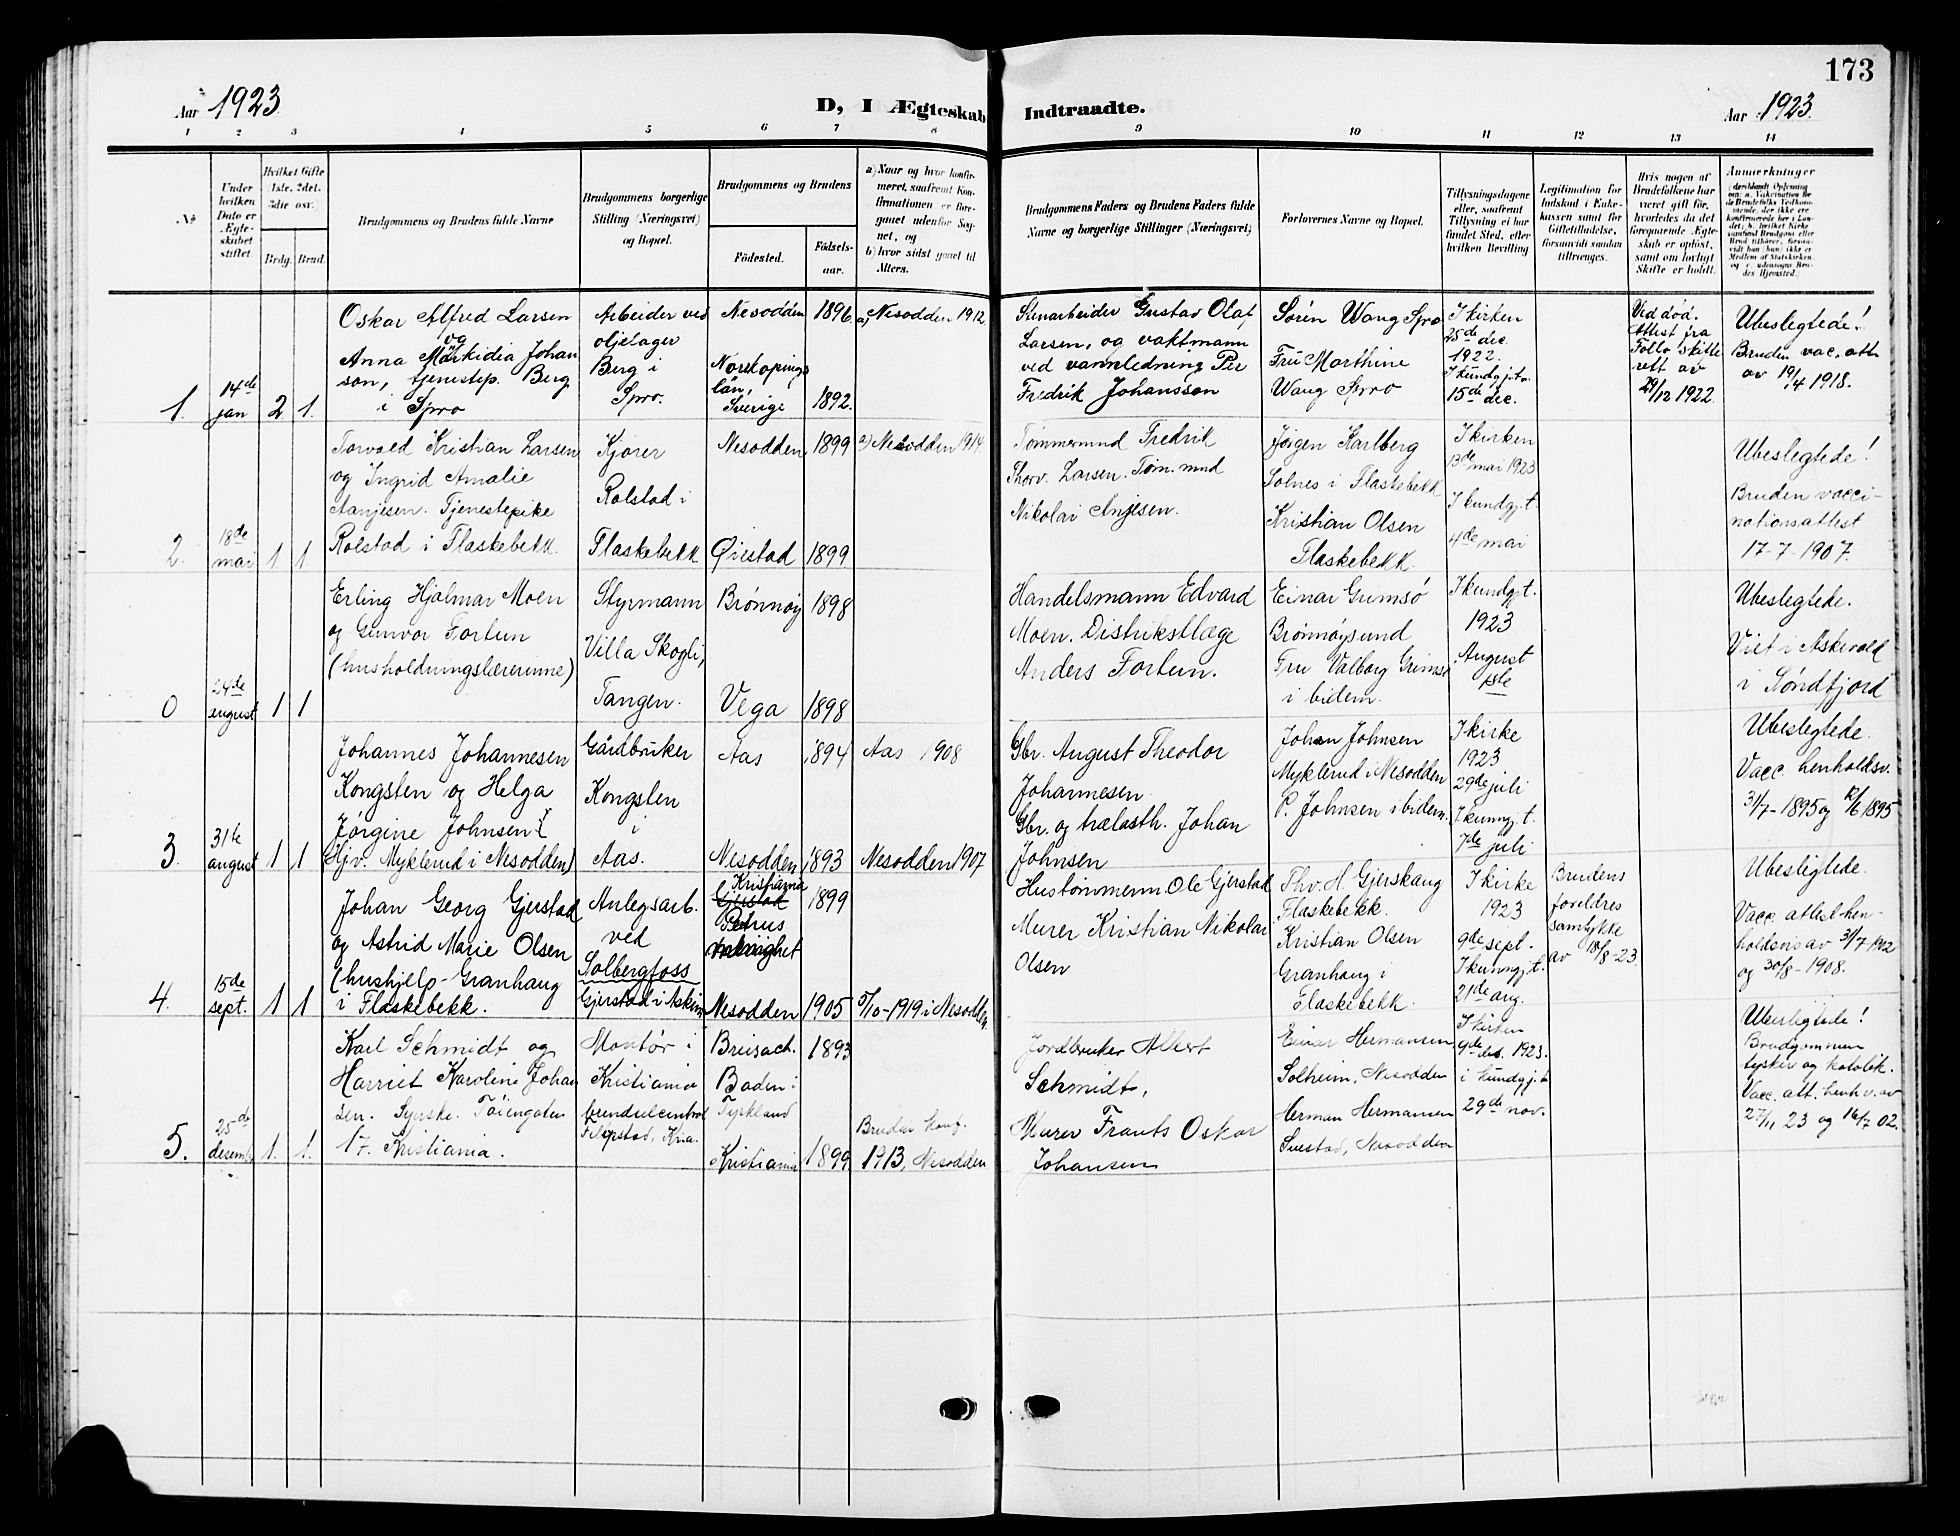 173
Aar 1923
D, I Ægteskab Indtraadte.
Aar 1923.
1 2 3 4 5 6 7 8 9 10 11 12 13 14
№
Under hvilken Dato er Ægteskabet stiftet.
Hvilket Gifte 1ste. 2det. 3die osv.)
Brdg. Brud.
Brudgommens og Brudens fulde Navne
Brudgommens borgerlige Stilling (Næringsvei) og Bopæl.
Brudgommens og Brudens
Fødested.
Fødselsaar.
a) Naar og hvor konfirmeret, saafremt Konfirmationen er foregaaet udenfor Sognet, og
b) hvor sidst gaaet til Alters.
Brudgommens Faders og Brudens Faders fulde Navne og borgerlige Stillinger (Næringsvei)
Forlovernes Navne og Bopæl.
Tillysningsdagene eller, saafremt Tillysning ei har fundet Sted, efter hvilken Bevilling
Legitimation for Indskud i Enkekassen samt for Giftetilladelse, forsaavidt saadan tiltrænges.
Hvis nogen af Brudefolkene har været gift før, hvorledes da det foregaaende Ægteskab er opløst, samt om lovligt Skifte er holdt.
Anmerkninger
1.
14de
jan
2
1.
Oskar Alfred Larsen
og
Anna Markidia Johan
son, tjenestep. Berg
i Spro
Arbeider ved
oljelager
Berg i
Spro.
Nesodden
1896
a) Nesodden 1912.
Nordkøpings
län,
Sverige
1892.
Stenarbeider Gustav Olaf
Larsen, og vaktmann
ved vannledning Per
Fredrik Johansson
Sørén Wang Spro
Fru Marthine
Wang Spro
I kirken
25de dec.
1922.
I kundgj.t.
15de dec.
Ved død.
Attest fra
Follo skifte
rett av
29/12 1922.
Ubeslegtede!
Bruden vac. att.
av 19/4 1918.
2.
18de
mai
1
1.
Torvald Kristian Larsen
og Ingrid Amalie
Aanjesen. Tjenestepike
Rolstad i Flaskebekk.
Kjører
Rolstad i
Flaskebekk
Nesodden
1899
a) Nesodden 1914.
Øiestad
1899
Tømmermnd Fredrik
Thorv. Larsen. Tøm.mnd
Nikolai Anjesen.
Jørgen Karlberg
Solnes i Flaskebekk
Kristian Olsen
Flaskebekk.
I kirken
13de mai 1923
I kundgj.t.
4de mai
Ubeslegtede!
Bruden vacci-
nationsattest
17-7-1907.
0
24de
august
1
1
Erling Hjalmar Moen
og Gunvor Fortun
(husholdningslærerinne)
Styrmann
Villa Skogli,
Tangen.
Brønnøy
1898
Vega
1898
Handelsmann Edvard
Moen. Distrikstlæge
Anders Fortun.
Einar Grimsø
Brønnøysund
Fru Valborg Grimsø
i bidem.
I kundgj.t.
1923
August
1ste
Ubeslegtede.
Viet i Askevold
i Søndfjord
3.
31te
august
1
1
Johannes Johannesen
Kongsten og Helga
Jørgine Johnsen
(Hjv. Myklerud i Nesodden)
Gårdbruker
Kongsten
i
Aas.
Aas
1894
Aas 1908
Nesodden
1893
Nesodden 1907
Gbr. August Theodor
Johannesen
Gbr. og trælasth. Johan
Johnsen
Johan Johnsen
Myklerud i Nesodden
P. Johnsen i bidem.
I kirke
1923
29de juli
I kunngj.t.
7de juli
Ubeslegtede.
Vacc. henholdsv.
31/7-1895 og 12/6 1895
4.
15de
sept.
1
1
Johan Georg Gjerstad
og Astrid Marie Olsen
(hushjelp-Granhaug
i Flaskebekk.
Anlegsarb.
ved
Solbergfoss
Gjerstad i Askim
Kristiania
Gjerstad
Petrus
menighet
1899
Nesodden
1905
5/10-1919 i Nesodden.
Hustømmerm. Ole Gjerstad
Murer Kristian Nikolai
Olsen
Thv. H. Gjerskaug
Flaskebekk.
Kristian Olsen
Granhaug i
Flaskebekk.
I kirke
1923
9de sept.
I kunngj.t.
21de aug.
Brudens
foreldres
samtykke
av 18/8-23.
Ubeslegtede.
Vacc. attest hen-
holdsvis av 31/7 1902
og 30/8-1908.
5.
25de
desemb.
1.
1.
Karl Schmidt og
Harriet Karoline Johan
sen. Syerske. Tøiengaten
17. Kristiania.
Montør i
Kristiania
Filipstad, Kria.
Breisach.
Baden i
Tyskland
1893
Kristiania
1899
Bruden konf.
1913, Nesodden
Jordbruker Albert
Schmidt,
Murer Frants Oskar
Johansen
Einar Hermansen
Solheim, Nesodden
Herman Hermansen
Nesodden
I kirken
9de des. 1923.
i kundgj.t.
29de nov.
Ubeslegtede!
Brudgommen
tysker og katolik.
Vacc. att. henh.v. av
27/11 23 og 16/7 02.